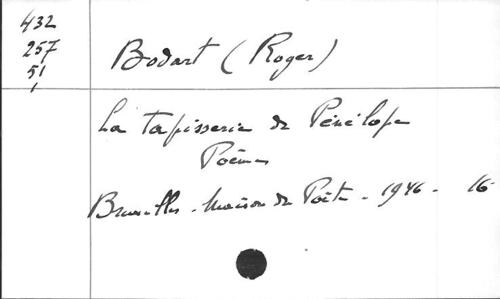 432
257
51
1
Bodart (Roger)
La tapisserie de Pénélope
Poèmes
Bruxelles - Maison du Poète - 1946 - 16